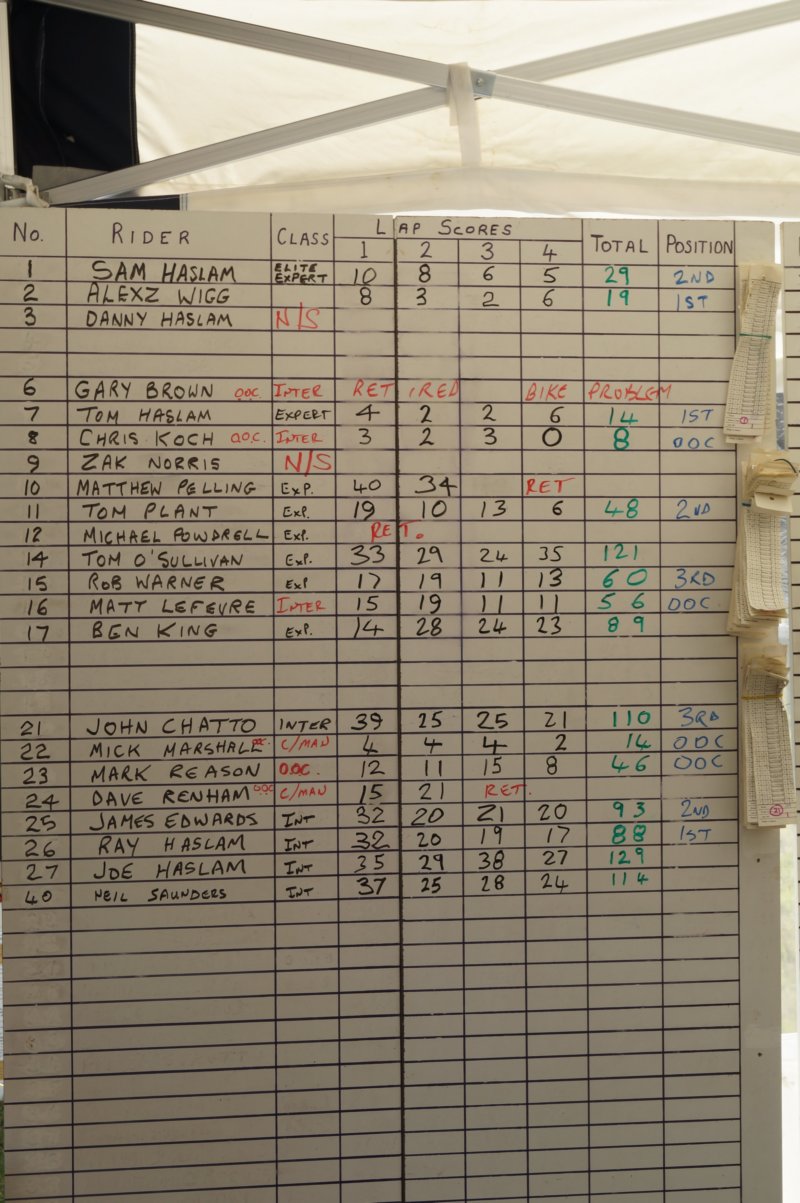 No. RIDER CLASS LAP SCORES TOTAL POSITION
1 2 3 4
1 SAM HASLAM ELITE EXPERT 10 8 6 5 29 2ND
2 ALEXZ WIGG 8 3 2 6 19 1ST
3 DANNY HASLAM N/S
6 GARY BROWN OOC INTER RETIRED BIKE PROBLEM
7 TOM HASLAM EXPERT 4 2 2 6 14 1ST
8 CHRIS KOCH O.O.C. INTER 3 2 3 0 8 OOC
9 ZAK NORRIS N/S
10 MATTHEW PELLING EXP. 40 34 RET
11 TOM PLANT EXP. 19 10 13 6 48 2ND
12 MICHAEL POWDRELL EXP. RET.
14 TOM O'SULLIVAN EXP. 33 29 24 35 121
15 ROB WARNER EXP 17 19 11 13 60 3RD
16 MATT LEFEVRE INTER 15 19 11 11 56 OOC
17 BEN KING EXP. 14 28 24 23 89
21 JOHN CHATTO INTER 39 25 25 21 110 3RD
22 MICK MARSHALL C/MAN 4 4 4 2 14 OOC
23 MARK REASON OOC. 12 11 15 8 46 OOC
24 DAVE RENHAM OOC C/MAN 15 21 RET.
25 JAMES EDWARDS INT 32 20 21 20 93 2ND
26 RAY HASLAM INT 32 20 19 17 88 1ST
27 JOE HASLAM INT 35 29 38 27 129
40 NEIL SAUNDERS INT 37 25 28 24 114